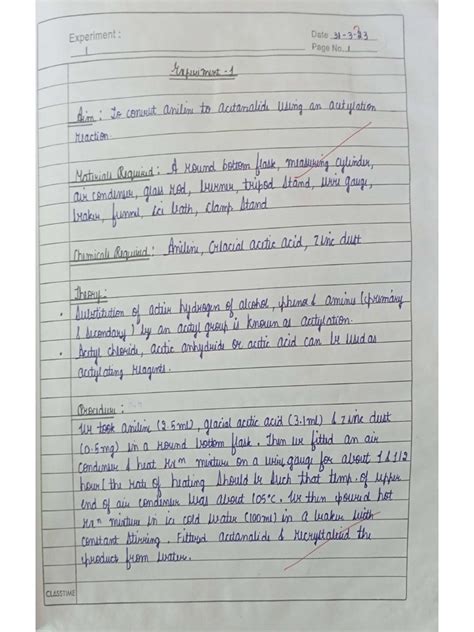 Experiment :
1
Date 31-3-23
Page No. 1
Experiment - 1
Aim : To convert aniline to acetanalide using an acetylation
reaction
Materials Required : A round bottom flask, measuring cylinder,
air condenser, glass rod, burner, tripod stand, wire gauge,
beaker, funnel, ice bath, clamp stand
Chemicals Required : Aniline, Glacial acetic acid, Zinc dust
Theory :
• Substitution of active hydrogen of alcohol, phenol & amine (primary
& secondary) by an acetyl group is known as acetylation.
• Acetyl chloride, acetic anhydride or acetic acid can be used as
acetylating reagents.
Procedure :
We took aniline (2.5ml), glacial acetic acid (3.1ml) & zinc dust
(0.5mg) in a round bottom flask. Then we fitted an air
condenser & heat rxⁿ mixture on a wire gauge for about 1 & 1/2
hour (the rate of heating should be such that temp. of upper
end of air condenser was about 105°C. We then poured hot
rxⁿ mixture in ice cold water (100ml) in a beaker with
constant stirring. Filtered acetanalide & recrystalised the
product from water.
CLASSTIME